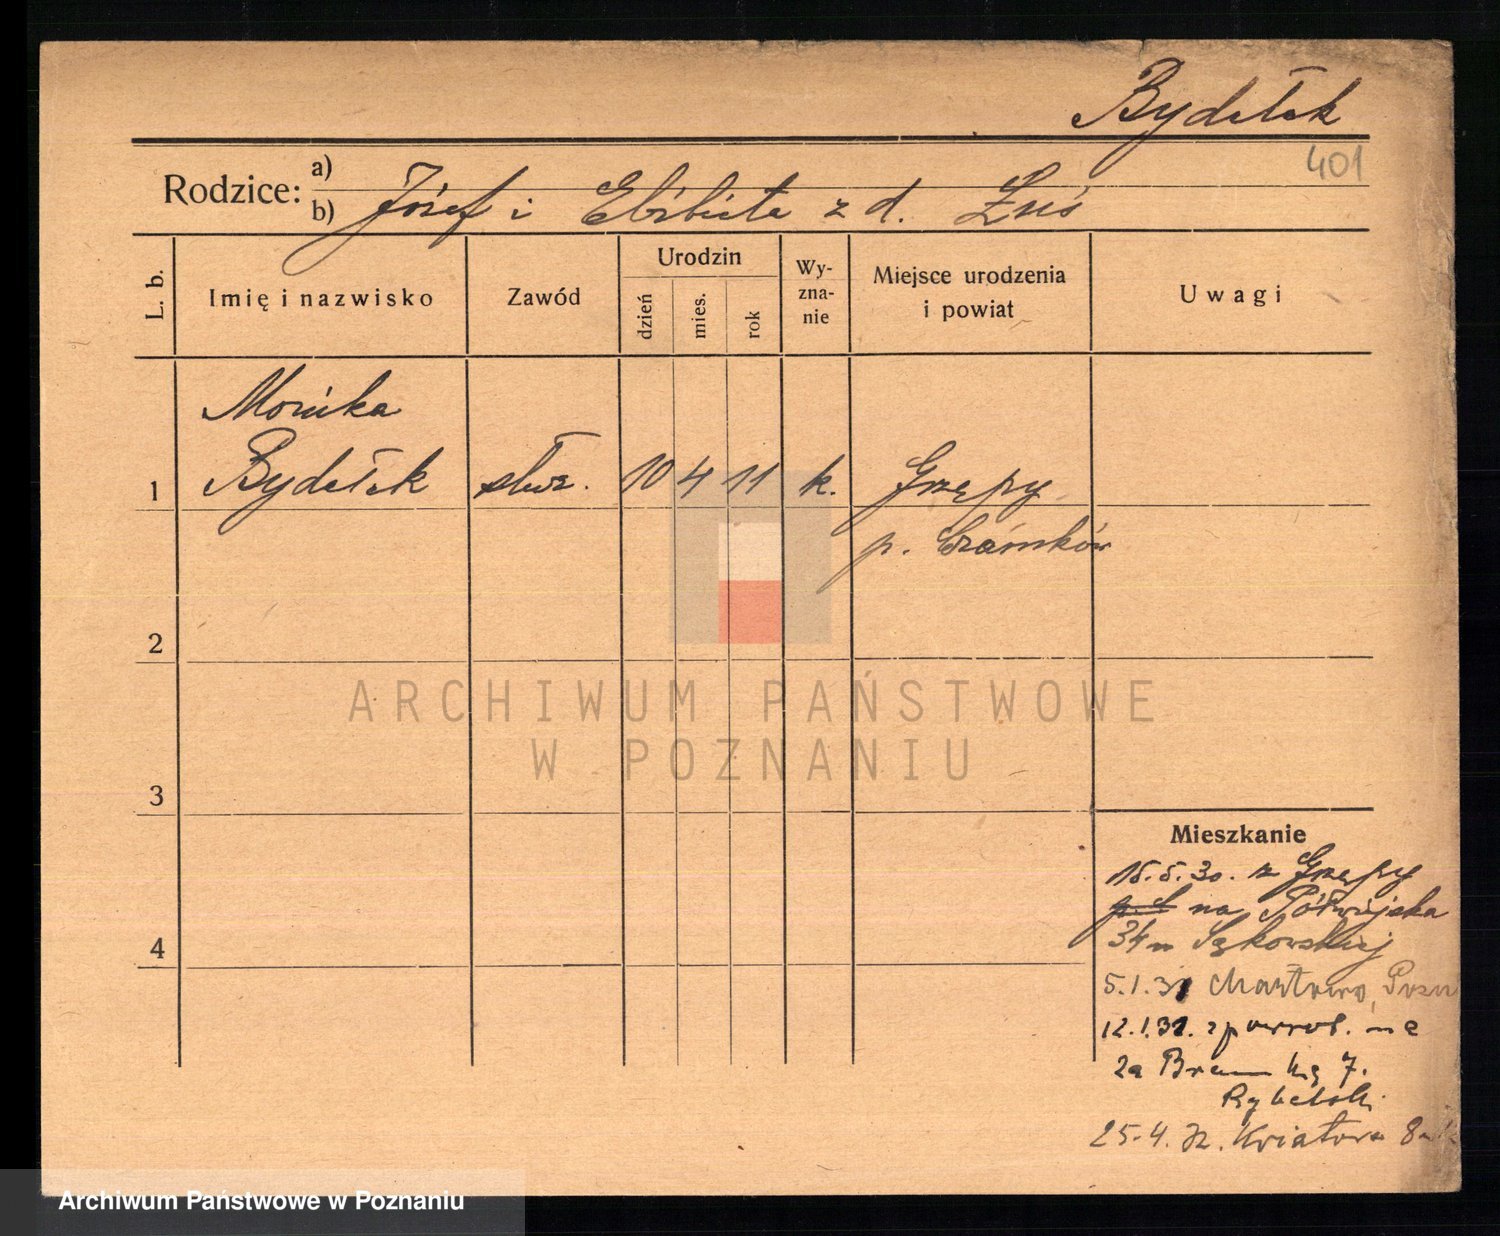 Bydełek
401
Rodzice: a)
b) Józef i Elżbieta z d. Łuś
L. b.
Imię i nazwisko
Zawód
Urodzin
dzień
mies.
rok
Wy-
zna-
nie
Miejsce urodzenia
i powiat
Uwagi
Monika
1 Bydełek służ. 10 4 11 k. Grzępy
p. Czarnków
2
ARCHIWUM PAŃSTWOWE
W POZNANIU
3
Mieszkanie
15.5.30. z Grzępy
na Półwiejska
34 m Sękowskiej
4
5.1.31 Chartowo, Pozn
12.1.31. z powrot. na
7.
25.4.32. Kwiatowa 8
Archiwum Państwowe w Poznaniu